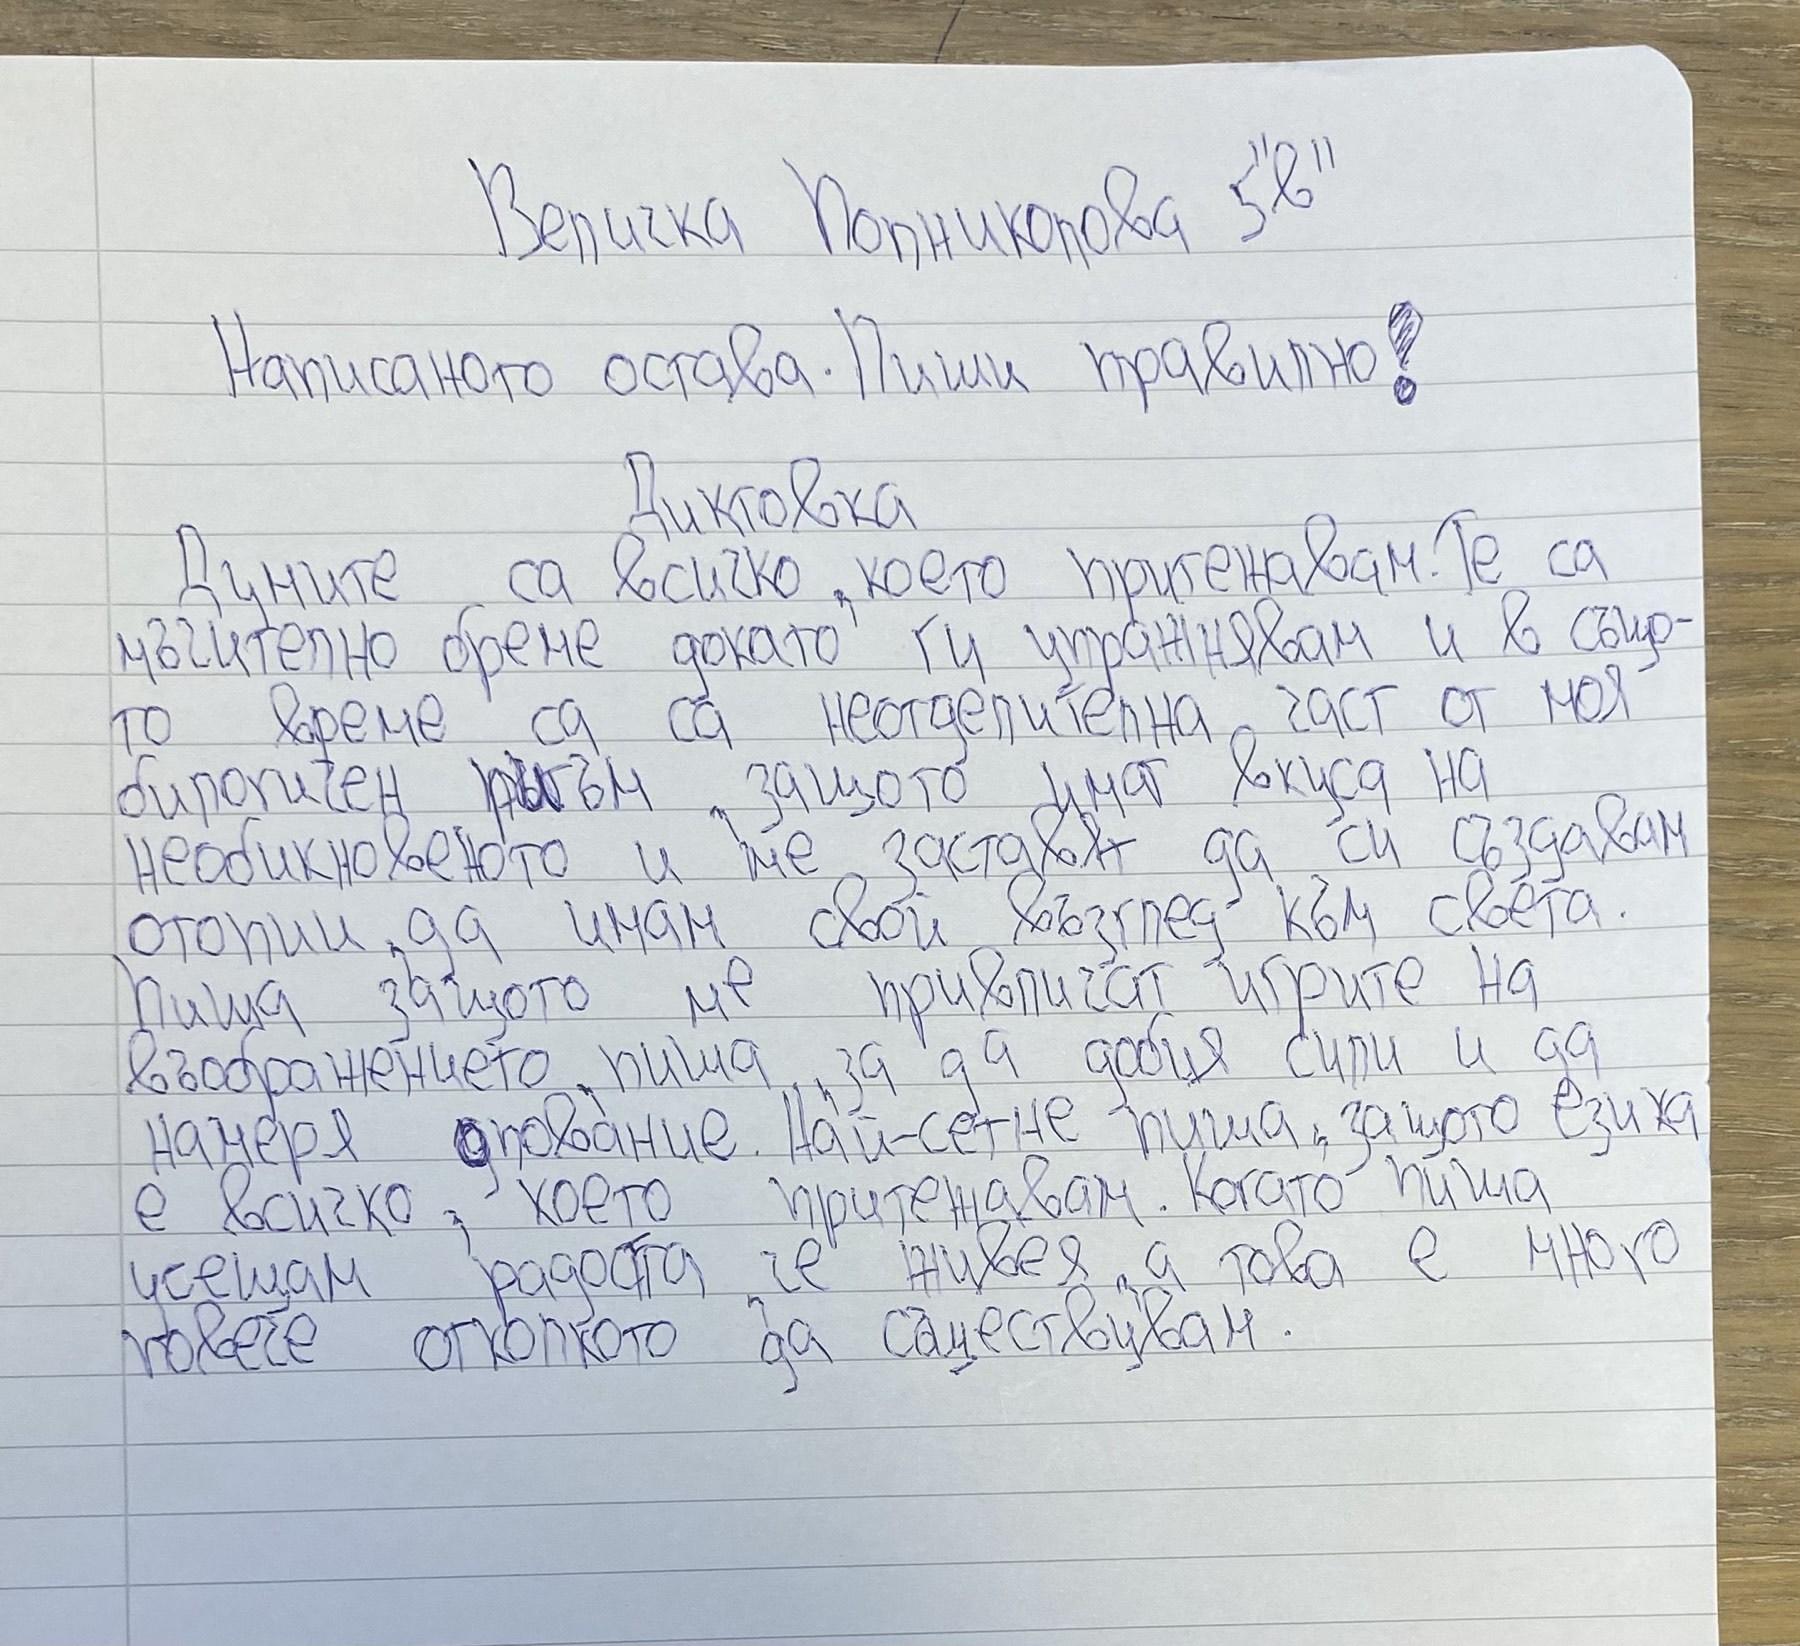 Величка Попниколова 5"в"
Написаното остава. Пиши правилно!
Диктовка
Думите са всичко, което притежавам. Те са
мъчително бреме докато ги упражнявам и в също-
то време са са неотделителна част от моя
билогичен ритъм, защото имат вкуса на
необикновеното и ме заставят да си създавам
отопии, да имам свой възглед към света.
Пиша защото ме привличат игрите на
възбражението, пиша, за да добия сили и да
намеря упование. Най-сетне пиша, защото езика
е всичко, което притежавам. Когато пиша
усещам радостта, че живея, а това е много
повече отколкото да съществувам.